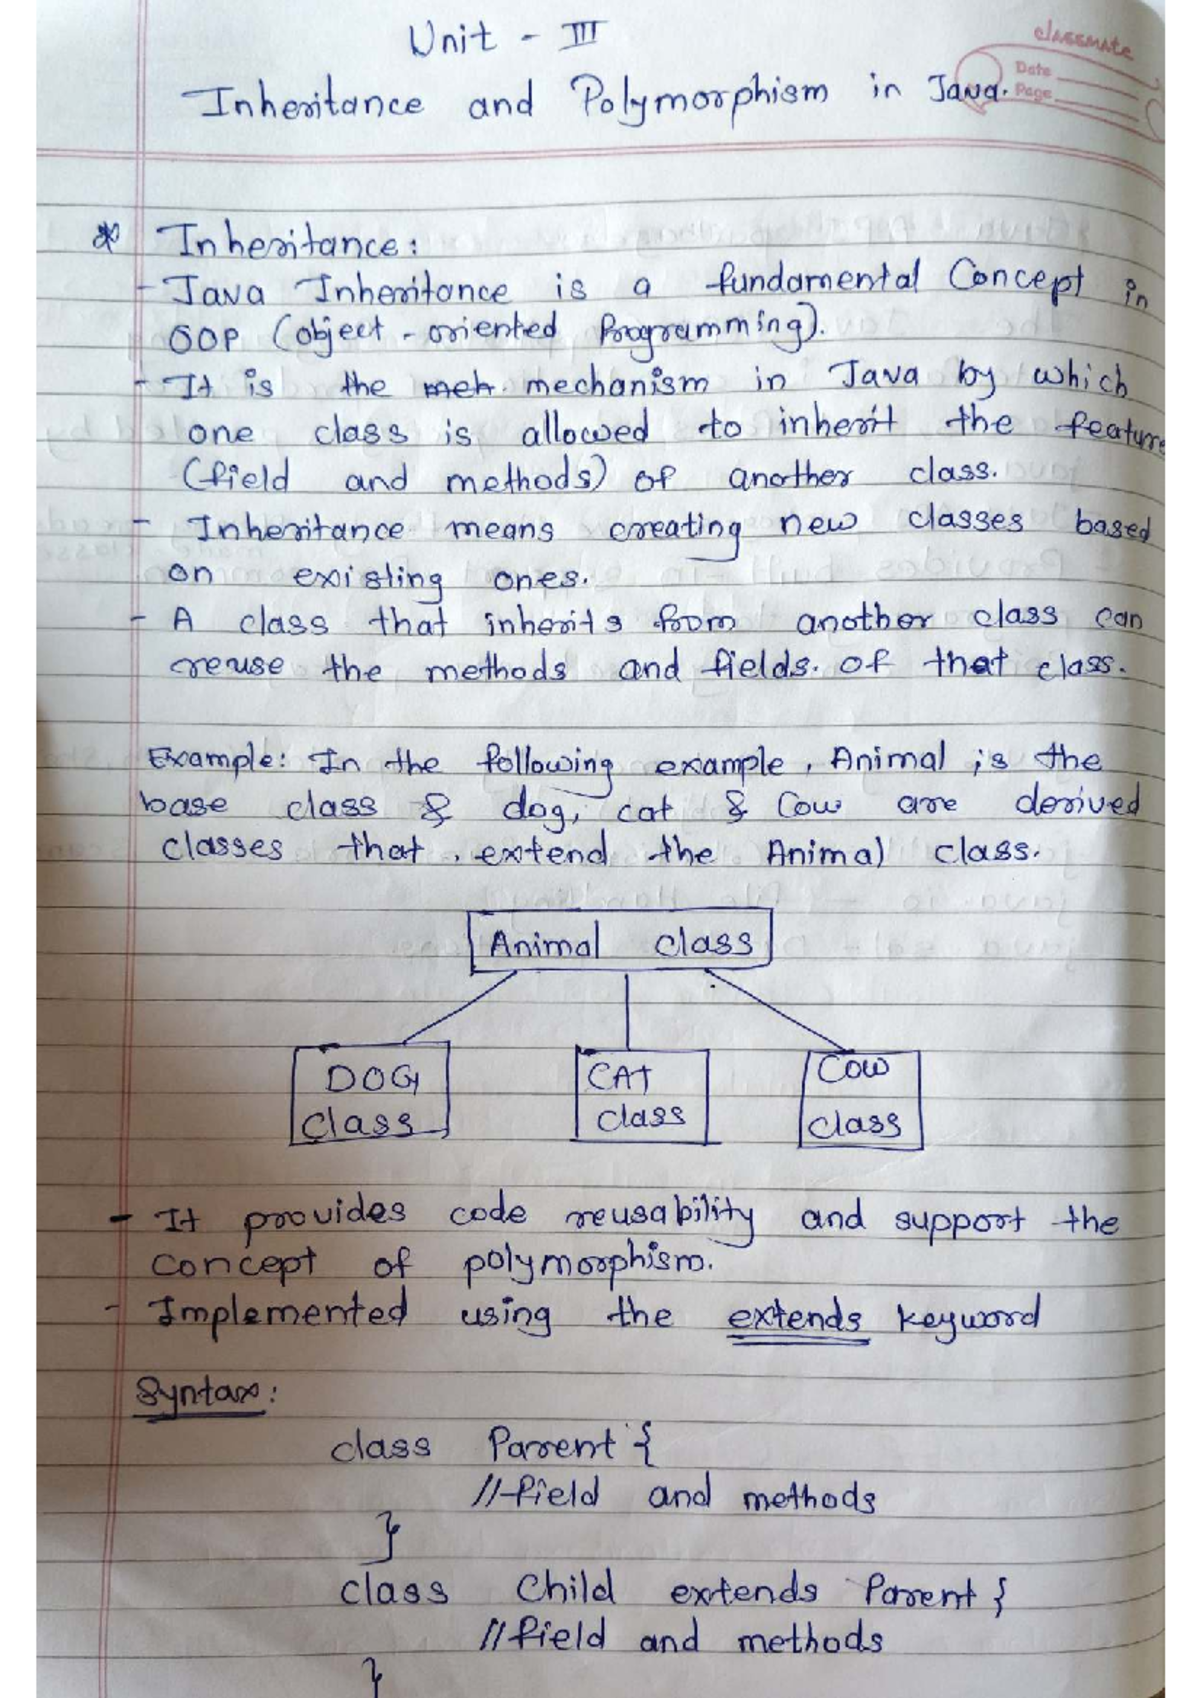 Unit - III
classmate
Date
Page
Inheritance and Polymorphism in Java.
* Inheritance:
- Java Inheritance is a fundamental Concept in
OOP (object - oriented Programming).
- It is the meh mechanism in Java by which
one class is allowed to inherit the feature
(field and methods) of another class.
- Inheritance means creating new classes based
on existing ones.
- A class that inherits from another class can
reuse the methods and fields. of that class.
Example: In the following example, Animal is the
base class & dog, cat & Cow are derived
classes that, extend the Animal class.
Animal class
DOG
class
CAT
class
Cow
class
- It provides code reusability and support the
concept of polymorphism.
- Implemented using the extends keyword
Syntax:
class Parent {
//field and methods
}
class Child extends Parent {
//field and methods
}